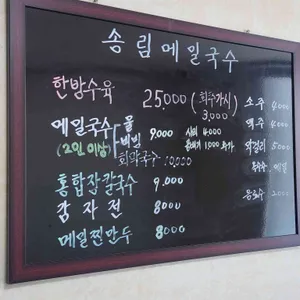 송림메밀국수
한방수육 25,000 (회추가시 3,000)
메밀국수 물 비빔 9,000 사리 4,000
(2인 이상) 곱배기 1,000 추가
회막국수 10,000
통합잔칼국수 9,000
감자전 8000
메밀찐만두 8000
소주 4,000
맥주 4,000
막걸리 5,000
음료수 2,000